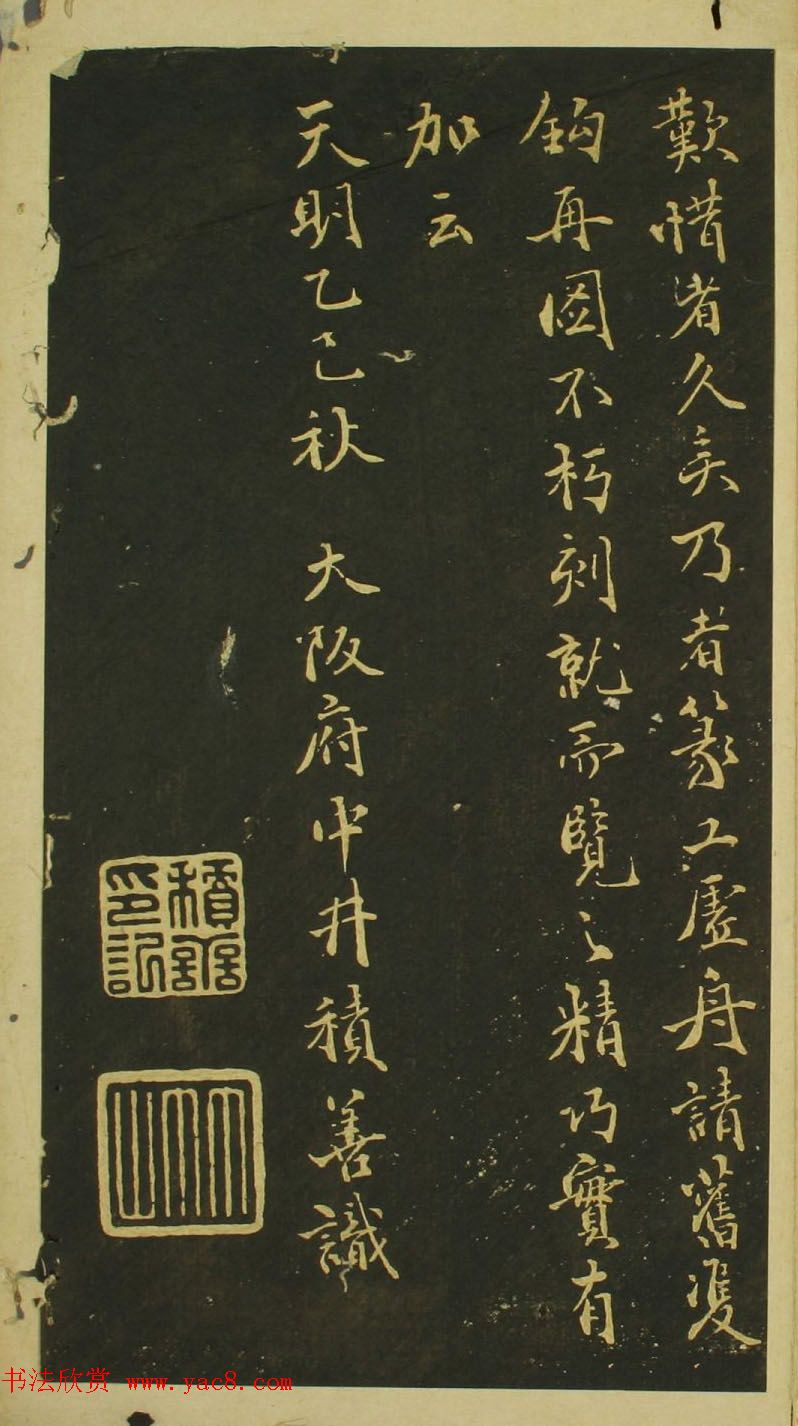 歎惜者久矣乃者篆工虛舟請舊雙
鈎再圖不朽刻就而覽之精巧實有
加云
天明乙巳秋 大阪府中井積善識
積善印記
竹山
书法欣赏 www.yac8.com